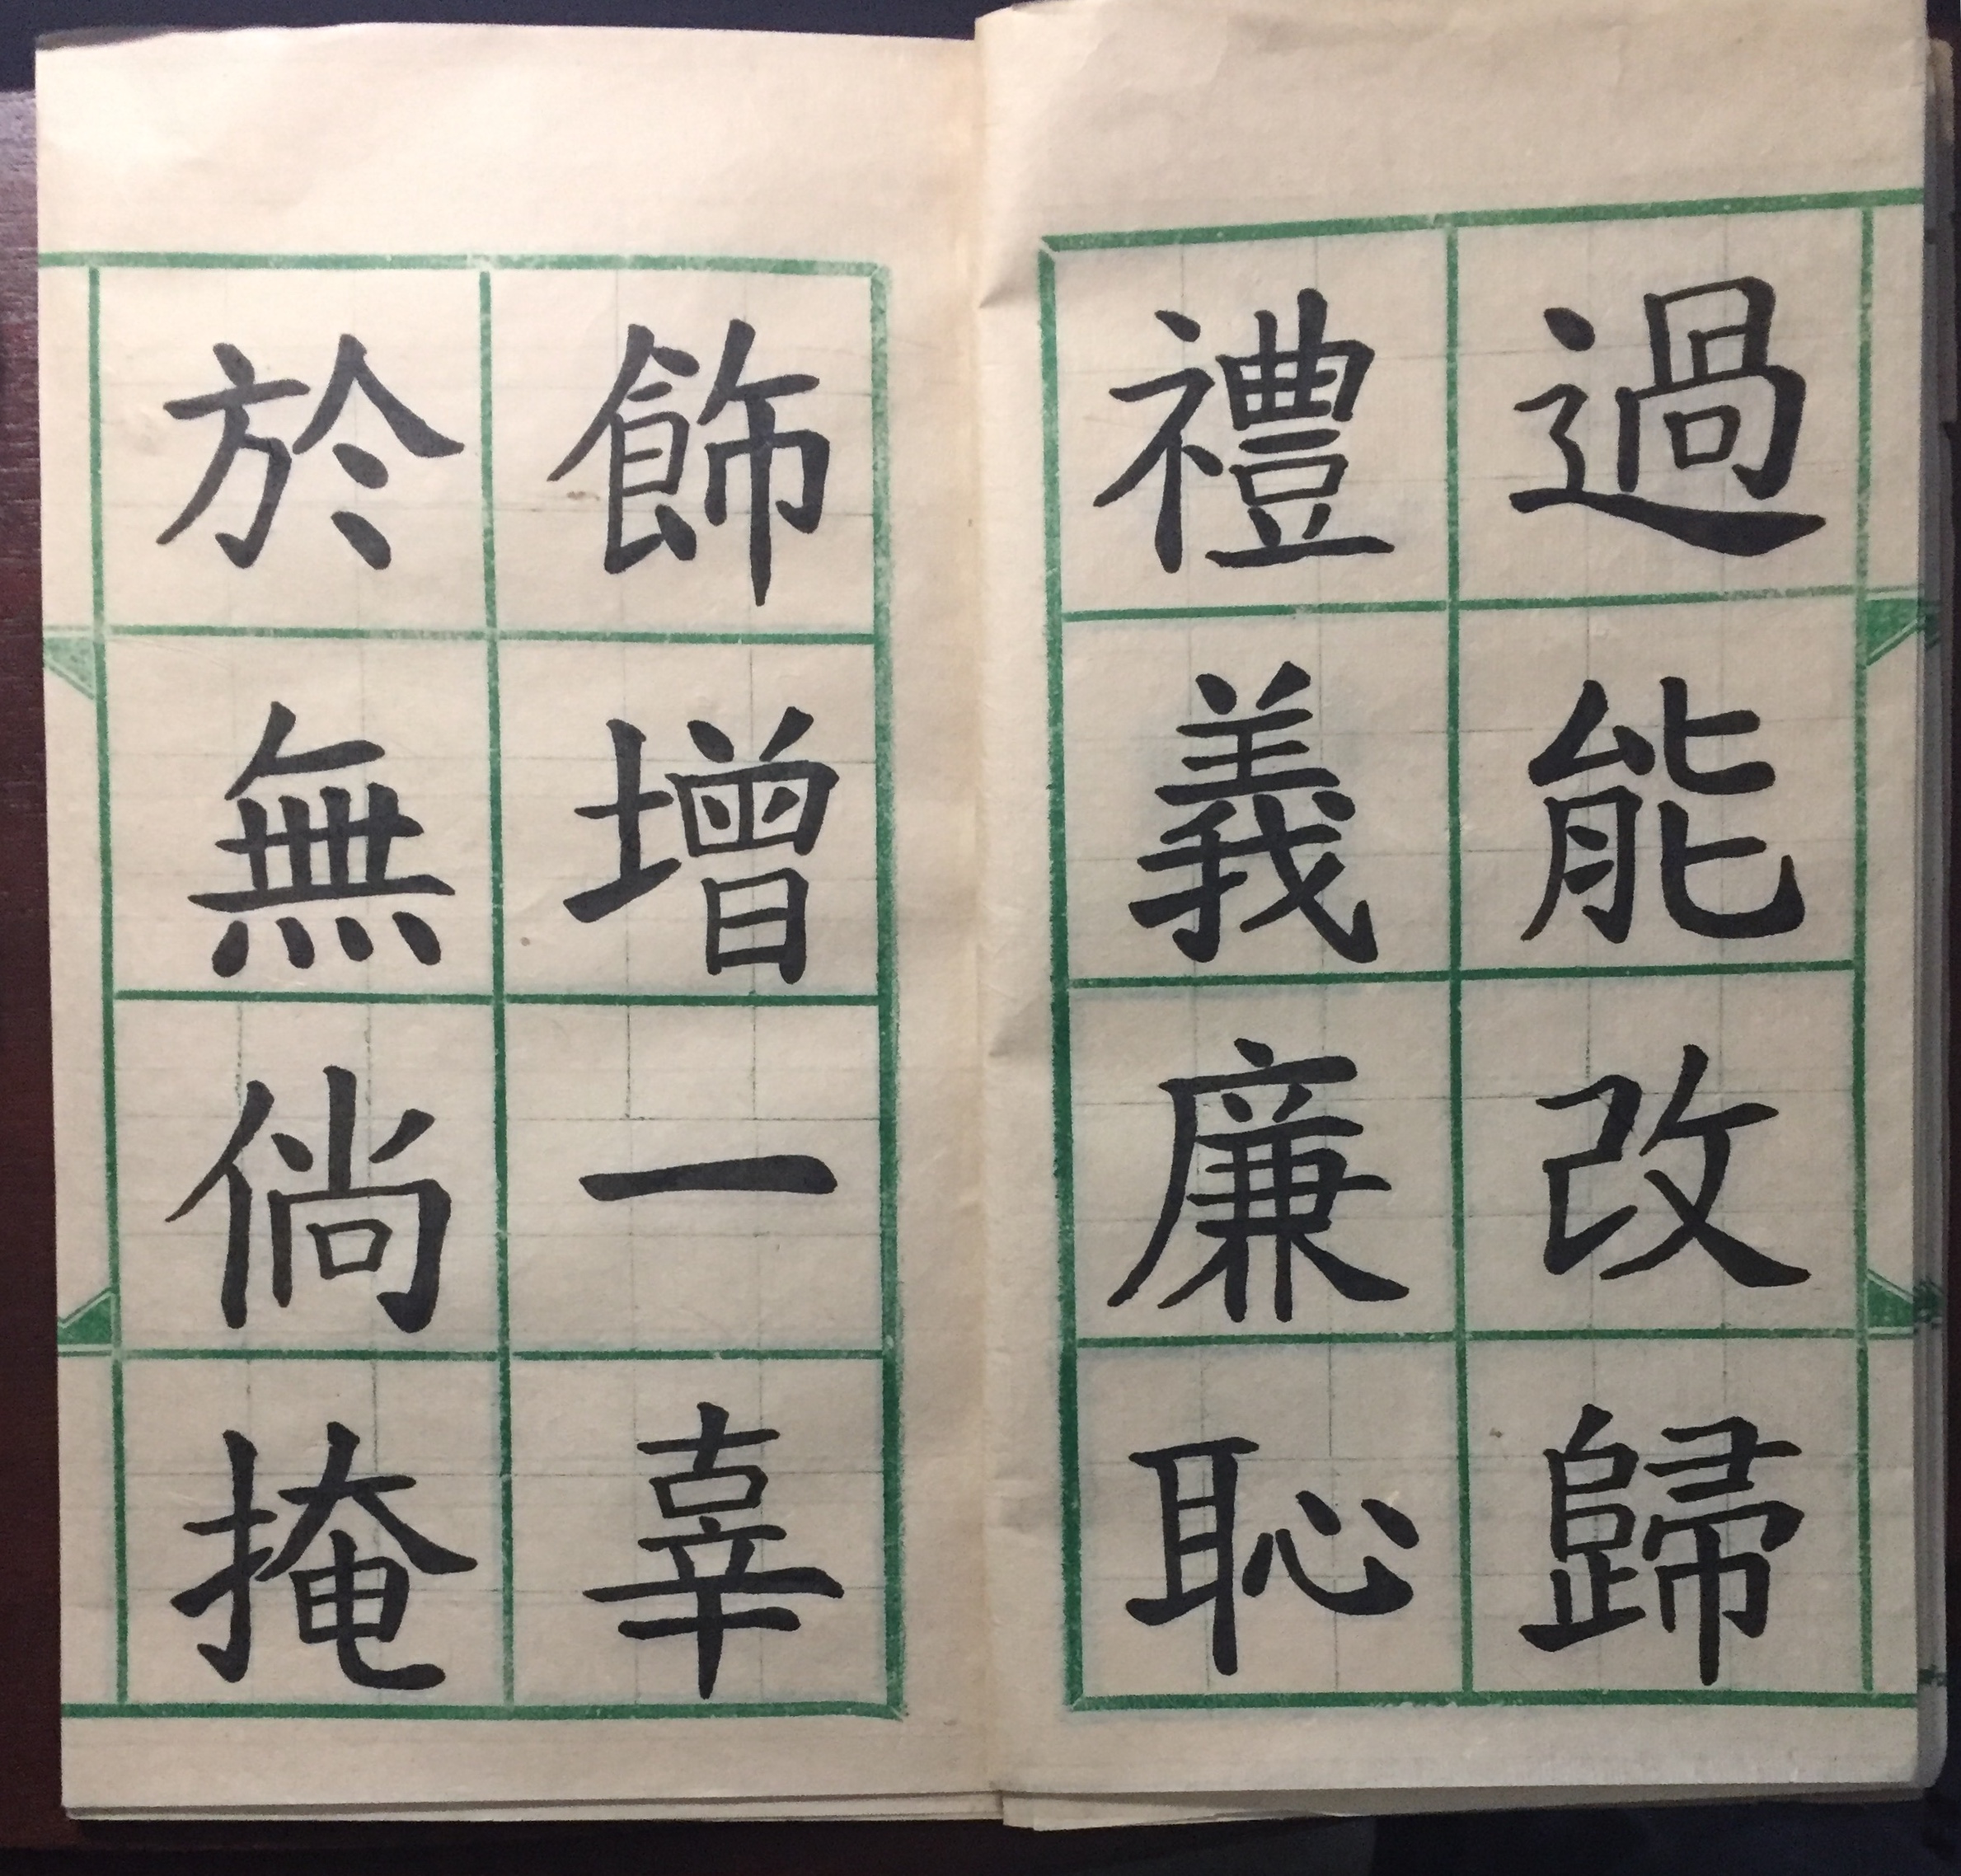 過能改歸
禮義廉恥
飾增一辜
於無倘掩